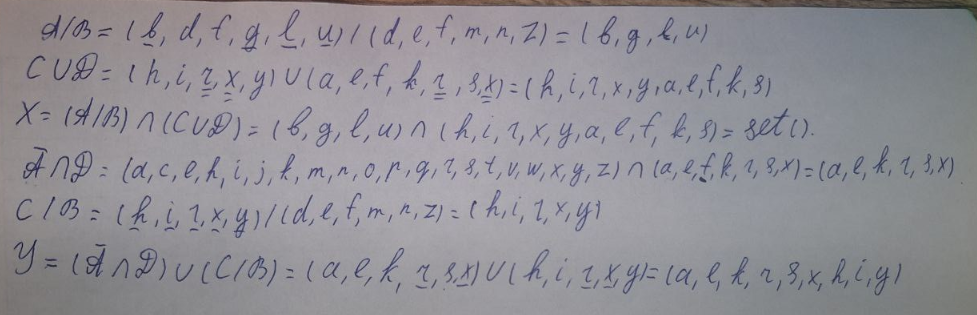 A/B = (b, d, f, g, l, u) / (d, e, f, m, n, z) = (b, g, l, u)
C∪D = (h, i, r, x, y) ∪ (a, e, f, k, r, s, x) = (h, i, r, x, y, a, e, f, k, s)
X = (A/B) ∩ (C∪D) = (b, g, l, u) ∩ (h, i, r, x, y, a, e, f, k, s) = set().
Ā∩D = (a, c, e, h, i, j, k, m, n, o, p, q, r, s, t, v, w, x, y, z) ∩ (a, e, f, k, r, s, x) = (a, e, k, r, s, x)
C/B = (h, i, r, x, y) / (d, e, f, m, n, z) = (h, i, r, x, y)
Y = (Ā∩D) ∪ (C/B) = (a, e, k, r, s, x) ∪ (h, i, r, x, y) = (a, e, k, r, s, x, h, i, y)